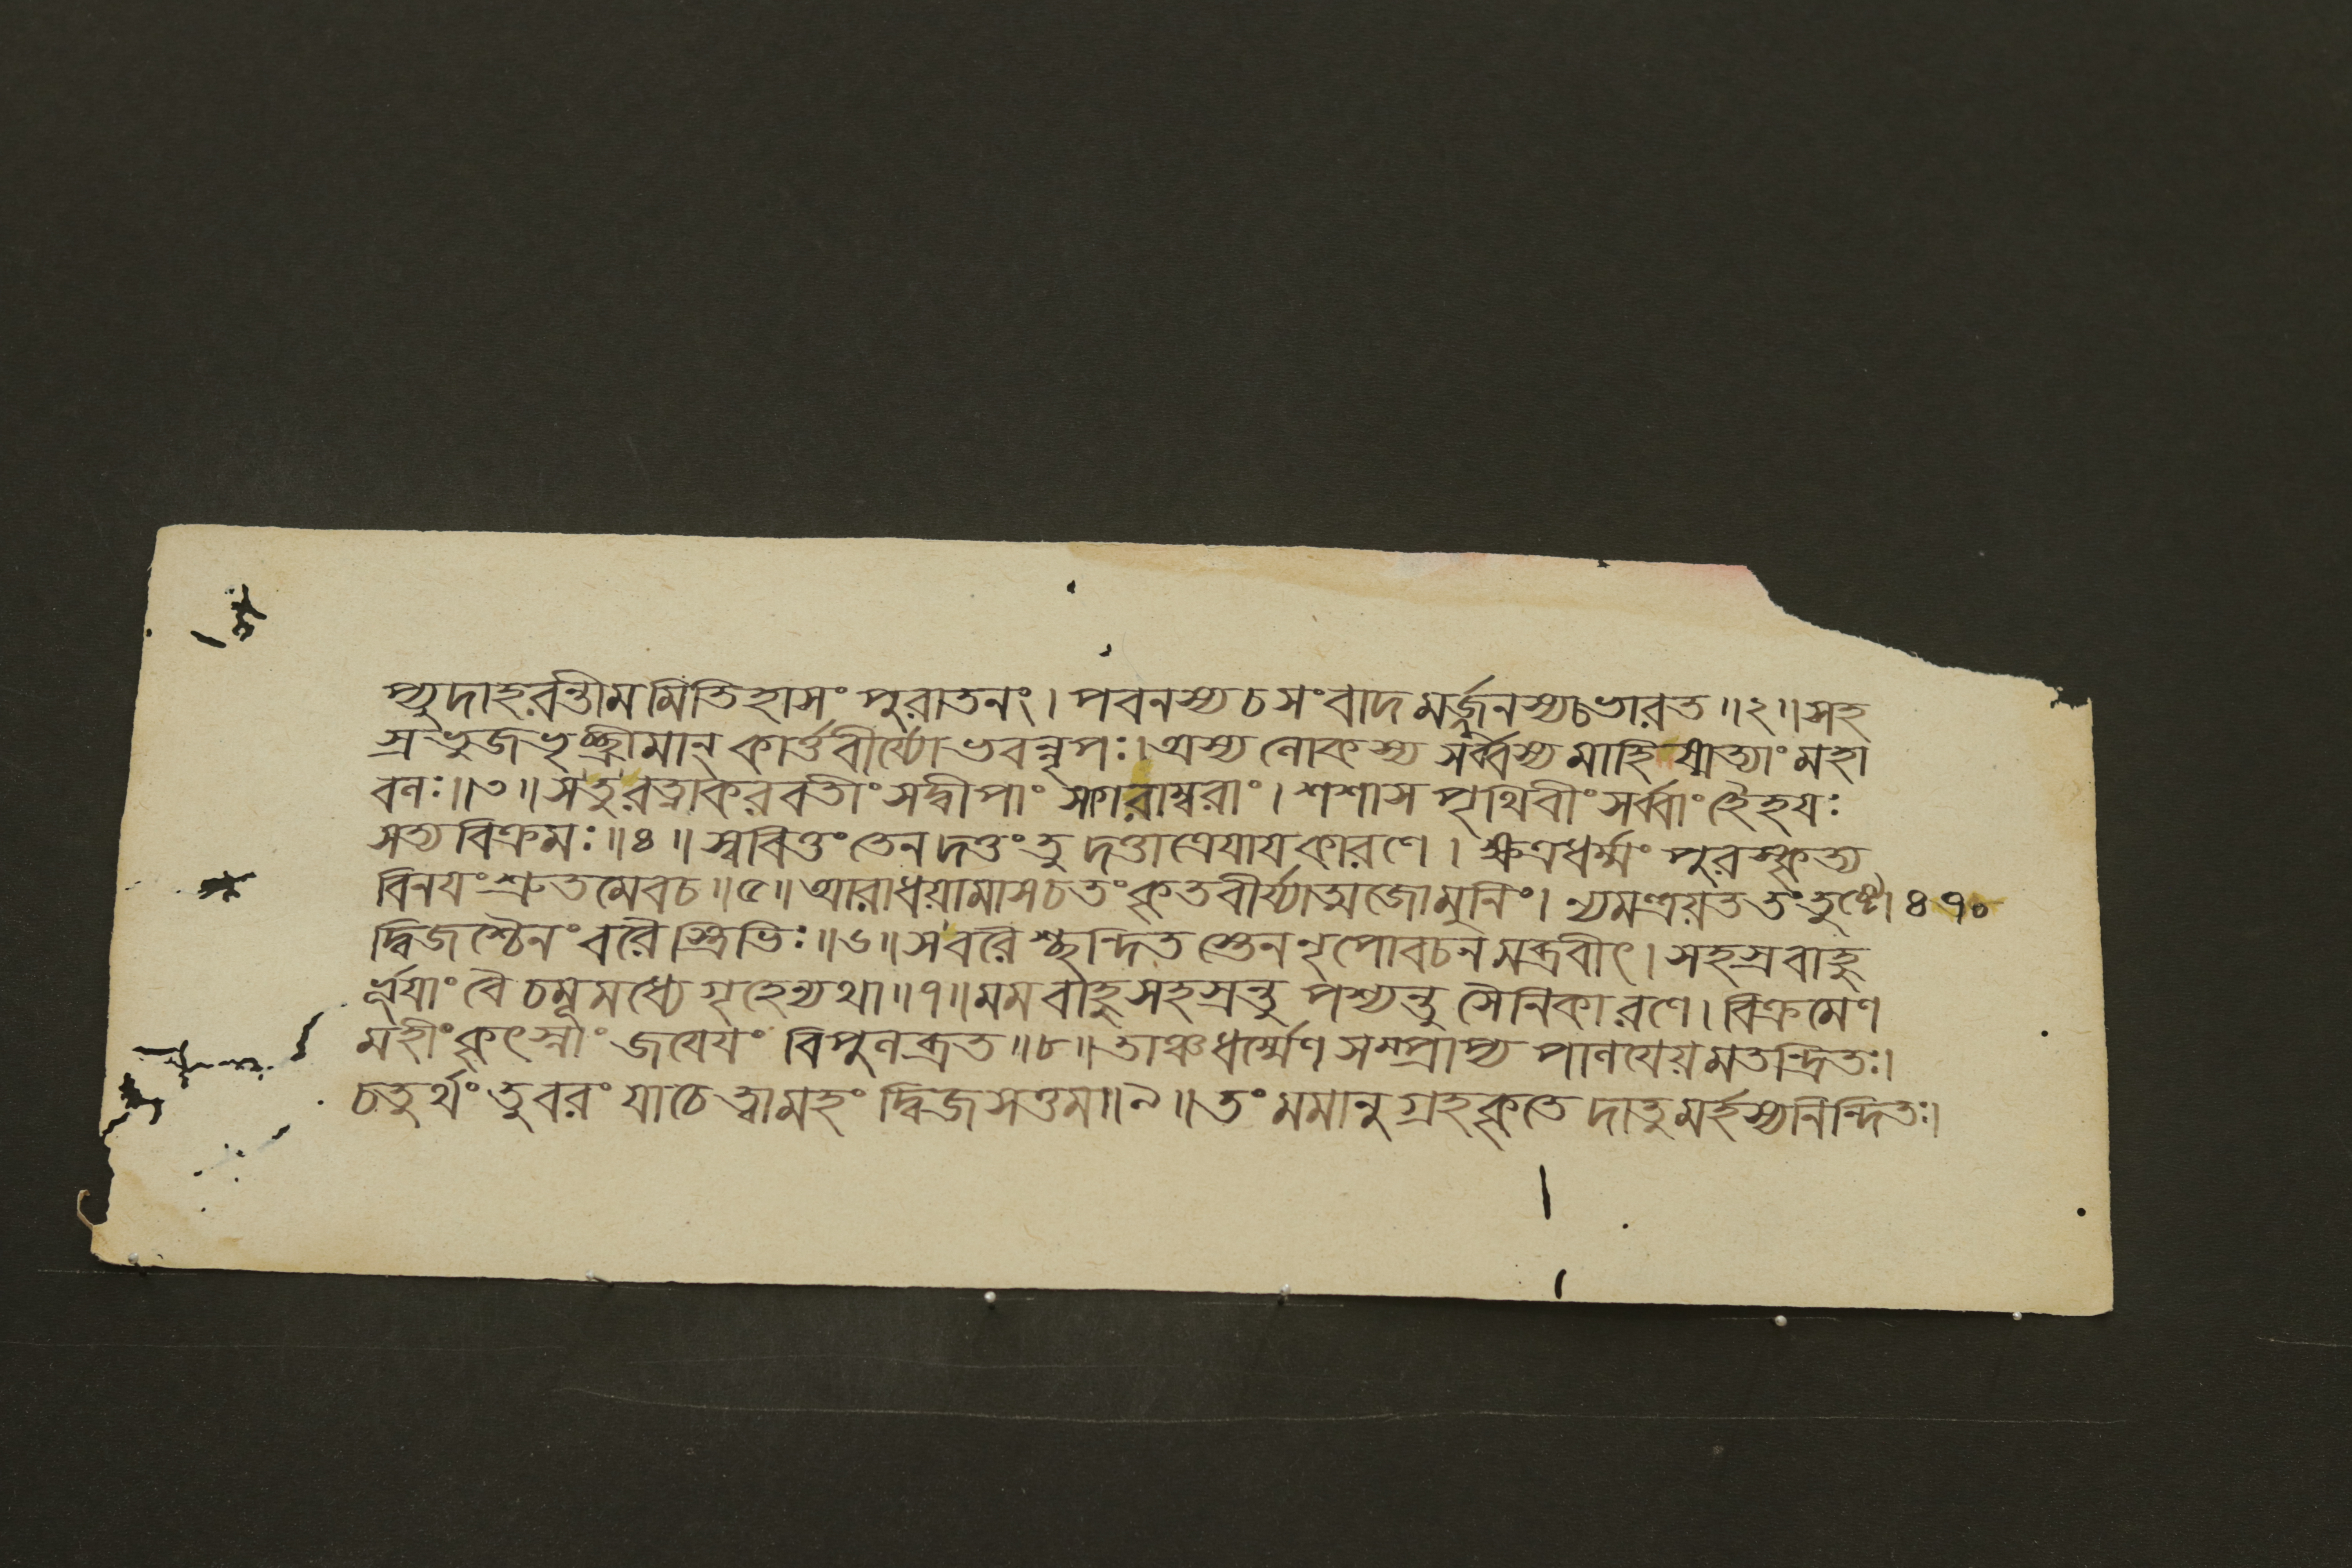 প্যুদাহরন্তীমমিতিহাসং পুরাতনং। পবনস্য চ সংবাদমর্জ্জুনস্যচভারত॥২॥সহ
স্রভুজভৃচ্ছ্রীমান্ কার্ত্তবীর্য্যোভবন্নৃপঃ।অস্য লোকস্য সর্ব্বস্য মাহিষ্মত্যাং মহা
বলঃ॥৩॥সতুরত্নাকরবতীং সদ্বীপাং সাগরাম্বরাং। শশাস পৃথিবীং সর্ব্বাং হৈহয়ঃ
সত্যবিক্রমঃ॥৪॥স্ববিত্তং তেন দত্তং তু দত্তাত্রেযাযকারণে। ক্ষত্রধর্ম্মং পুরস্কৃত্য
বিনযং শ্রুতমেবচ॥৫॥আরাধয়ামাসচতং কৃতবীর্য্যাত্মজোমুনিং। ন্যমন্ত্রয়ততংতুষ্টো ৪৭০
দ্বিজশ্চৈনং বরৈস্ত্রিভিঃ॥৬॥সবরৈশ্ছন্দিতস্তেননৃপোবচনমব্রবীৎ।সহস্রবাহু
র্ভূযাং বৈ চমূমধ্যে গৃহেন্যথা॥৭॥মমবাহুসহস্রন্তু পশ্যন্তু সৈনিকারণে।বিক্রমেণ
মহীং কৃৎস্নাং জযেযং বিপুলব্রত॥৮॥তাঞ্চধর্ম্মেণ সম্প্রাপ্য পালযেয়মতন্দ্রিতঃ।
চতুর্থং তুবরং যাচে ত্বামহং দ্বিজসত্তম॥৯॥তং মমানুগ্রহকৃতে দাতুমর্হস্যনিন্দিতঃ।